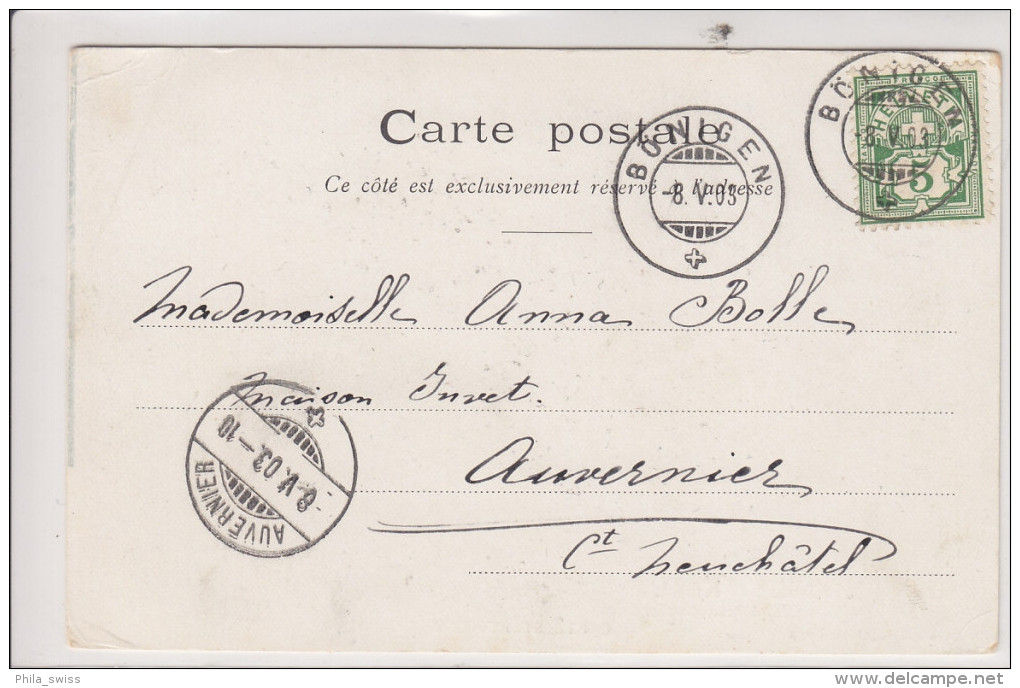 Carte postale
Ce côté est exclusivement réservé à l'adresse
BÖNIGEN
-8. V. 03
BÖNIGEN
-8. V. 03
FRANCO
HELVETIA
5
Mademoiselle Anna Bolle
maison Juvet.
Auvernier
Ct Neuchâtel
AUVERNIER
8. V. 03. – 10
Phila_swiss
delcampe.net